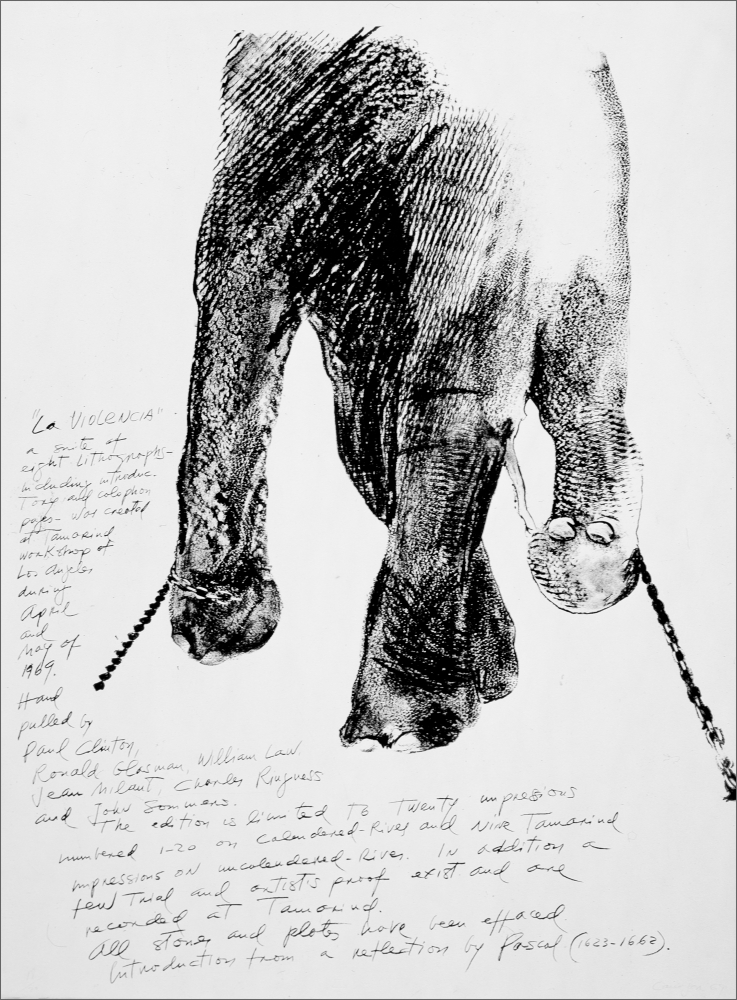 "La VIOLENCIA".
a suite of
eight Lithographs-
including introduc-
Tory and colophon
pages- was created
at Tamarind
workshop of
Los Angeles
during
April
and
May of
1969.
Hand
pulled by
Paul Clinton,
Ronald Glasman, William Law
Jean Milant, Charles Ringness
and John Sommers.
The edition is limited To Twenty impressions
numbered 1-20 on Calendered-Rives and Nine Tamarind
impressions on uncalendered-Rives. In addition a
few Trial and artist's proof exist and are
recorded at Tamarind.
All stones and plates have been effaced.
Introduction from a reflection by Pascal (1623-1662).